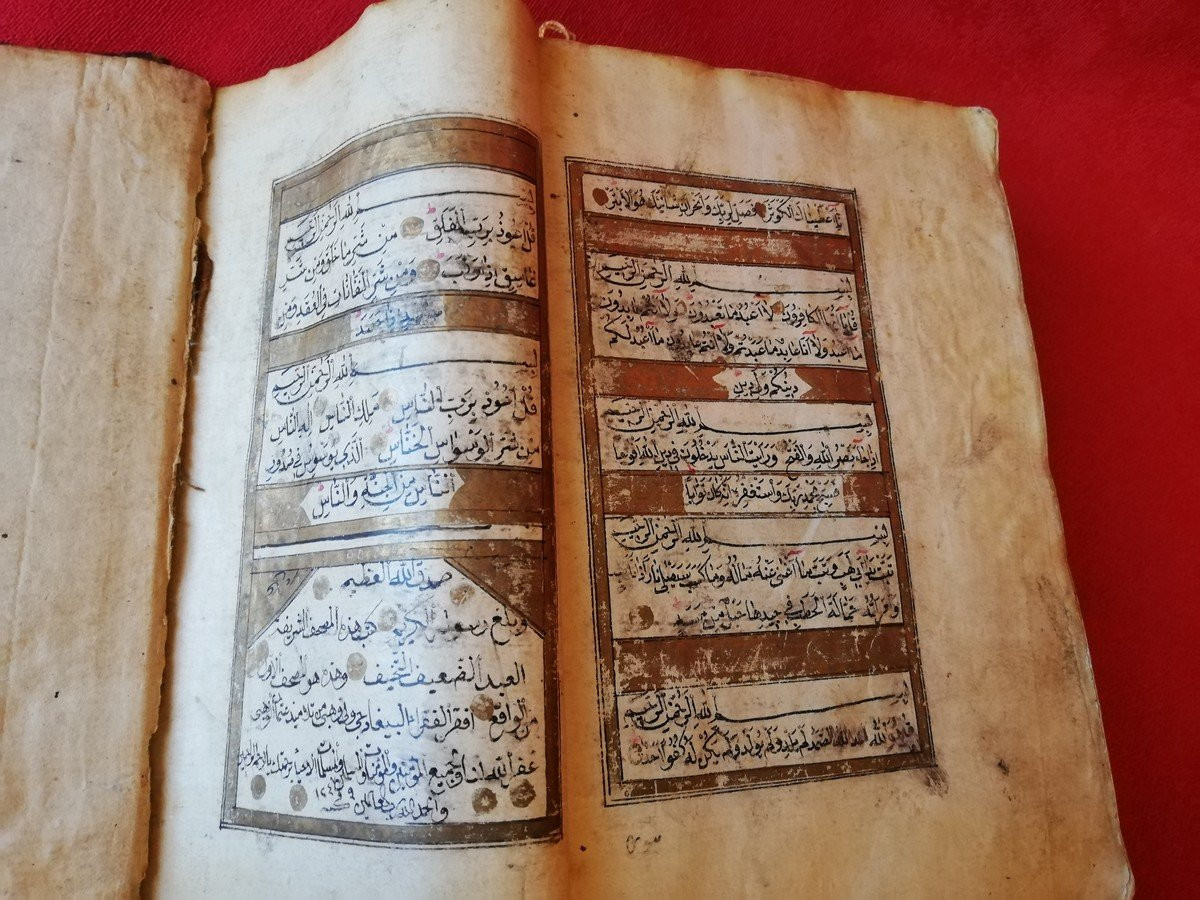 إنا أعطيناك الكوثر فصل لربك وانحر إن شانئك هو الابتر
بسم الله الرحمن الرحيم
قل يا أيها الكافرون لا أعبد ما تعبدون ولا أنتم عابدون
ما أعبد ولا أنا عابد ما عبدتم ولا أنتم عابدون ما أعبد لكم
دينكم ولي دين
بسم الله الرحمن الرحيم
إذا جاء نصر الله والفتح ورأيت الناس يدخلون في دين الله أفواجا
فسبح بحمد ربك واستغفره إنه كان توابا
بسم الله الرحمن الرحيم
تبت يدا أبي لهب وتب ما أغنى عنه ماله وما كسب سيصلى نارا ذات
وامرأته حمالة الحطب في جيدها حبل من مسد
بسم الله الرحمن الرحيم
قل هو الله أحد الله الصمد لم يلد ولم يولد ولم يكن له كفوا أحد
بسم الله الرحمن الرحيم
قل أعوذ برب الفلق من شر ما خلق ومن شر
غاسق إذا وقب ومن شر النفاثات في العقد ومن
شر حاسد إذا حسد
بسم الله الرحمن الرحيم
قل أعوذ برب الناس ملك الناس إله الناس
من شر الوسواس الخناس الذي يوسوس في صدور
الناس من الجنة والناس
صدق الله العظيم
وبلغ رسوله الكريم كتب هذه المصحف الشريفة
العبد الضعيف النحيف وهذا هو المصحف الاول
من الواقع أفقر الفقرا
غفر الله لنا ولجميع المؤمنين والمؤمنات
والحمد لله رب العالمين